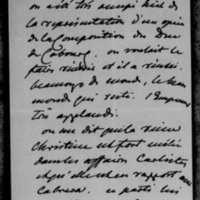 on a été très occupé hier de
la représentation d'un opéra
de la composition du duc
de Cobourg. on voulait le
faire réussir et il a réussi.
beaucoup de monde, le beau
monde qui reste. l'Empereur
très applaudi.
on me dit que la reine
Christine est fort mêlée
dans les affaires Carlistes
et qu'elle est en rapport avec
Cabrera. parti